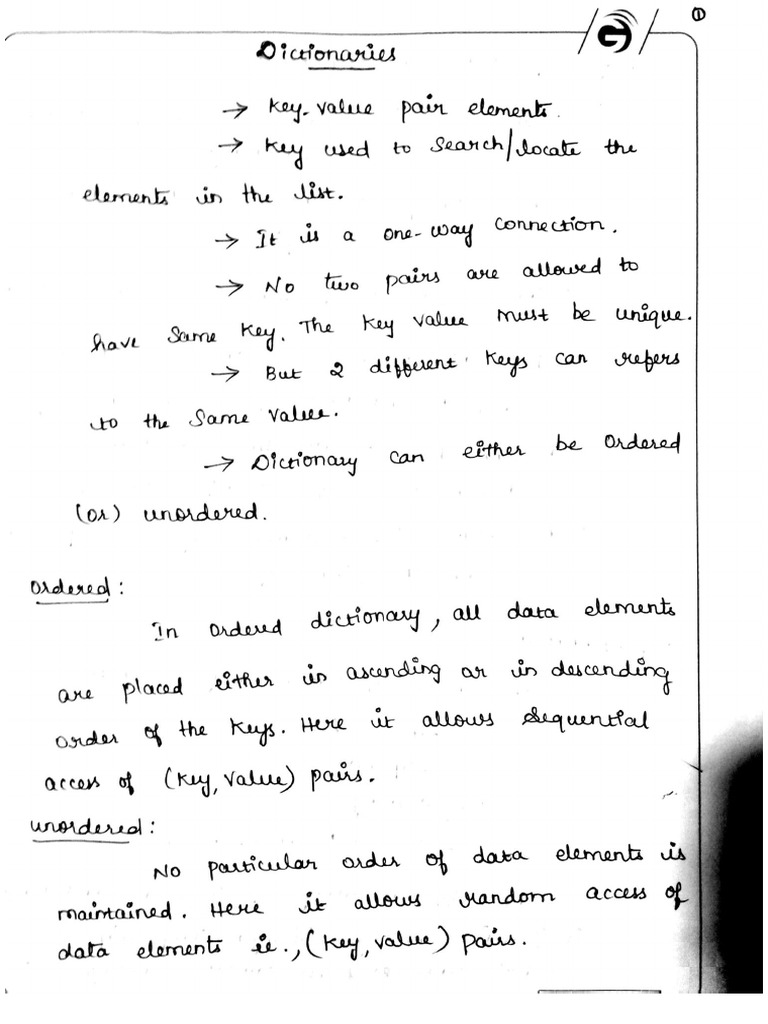 ①
Dictionaries
→ Key-value pair elements.
→ Key used to search/locate the
elements in the list.
→ It is a one-way connection.
→ No two pairs are allowed to
have same key. The key value must be unique.
→ But 2 different keys can refers
to the same value.
→ Dictionary can either be ordered
(or) unordered.
Ordered:
In ordered dictionary, all data elements
are placed either in ascending or in descending
order of the keys. Here it allows sequential
access of (key, value) pairs.
unordered:
No particular order of data elements is
maintained. Here it allows random access of
data elements ie., (key, value) pairs.